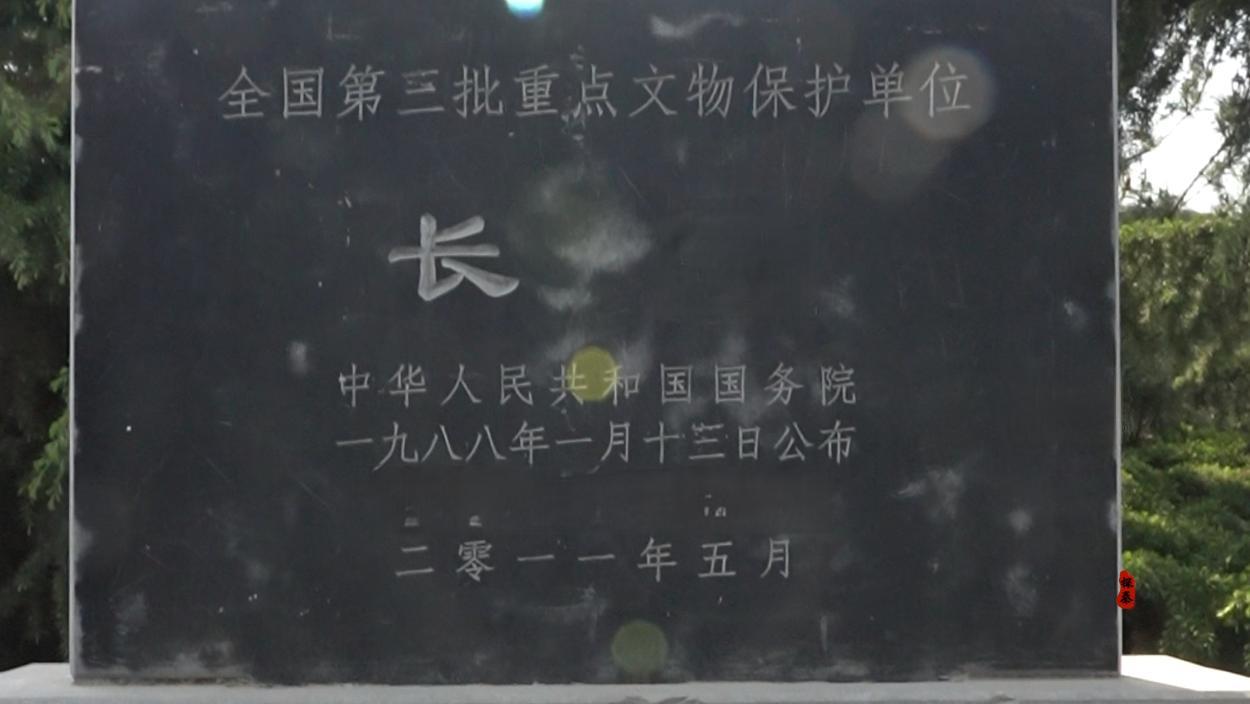 全国第三批重点文物保护单位
长
中华人民共和国国务院
一九八八年一月十三日公布
二零一一年五月
探秦